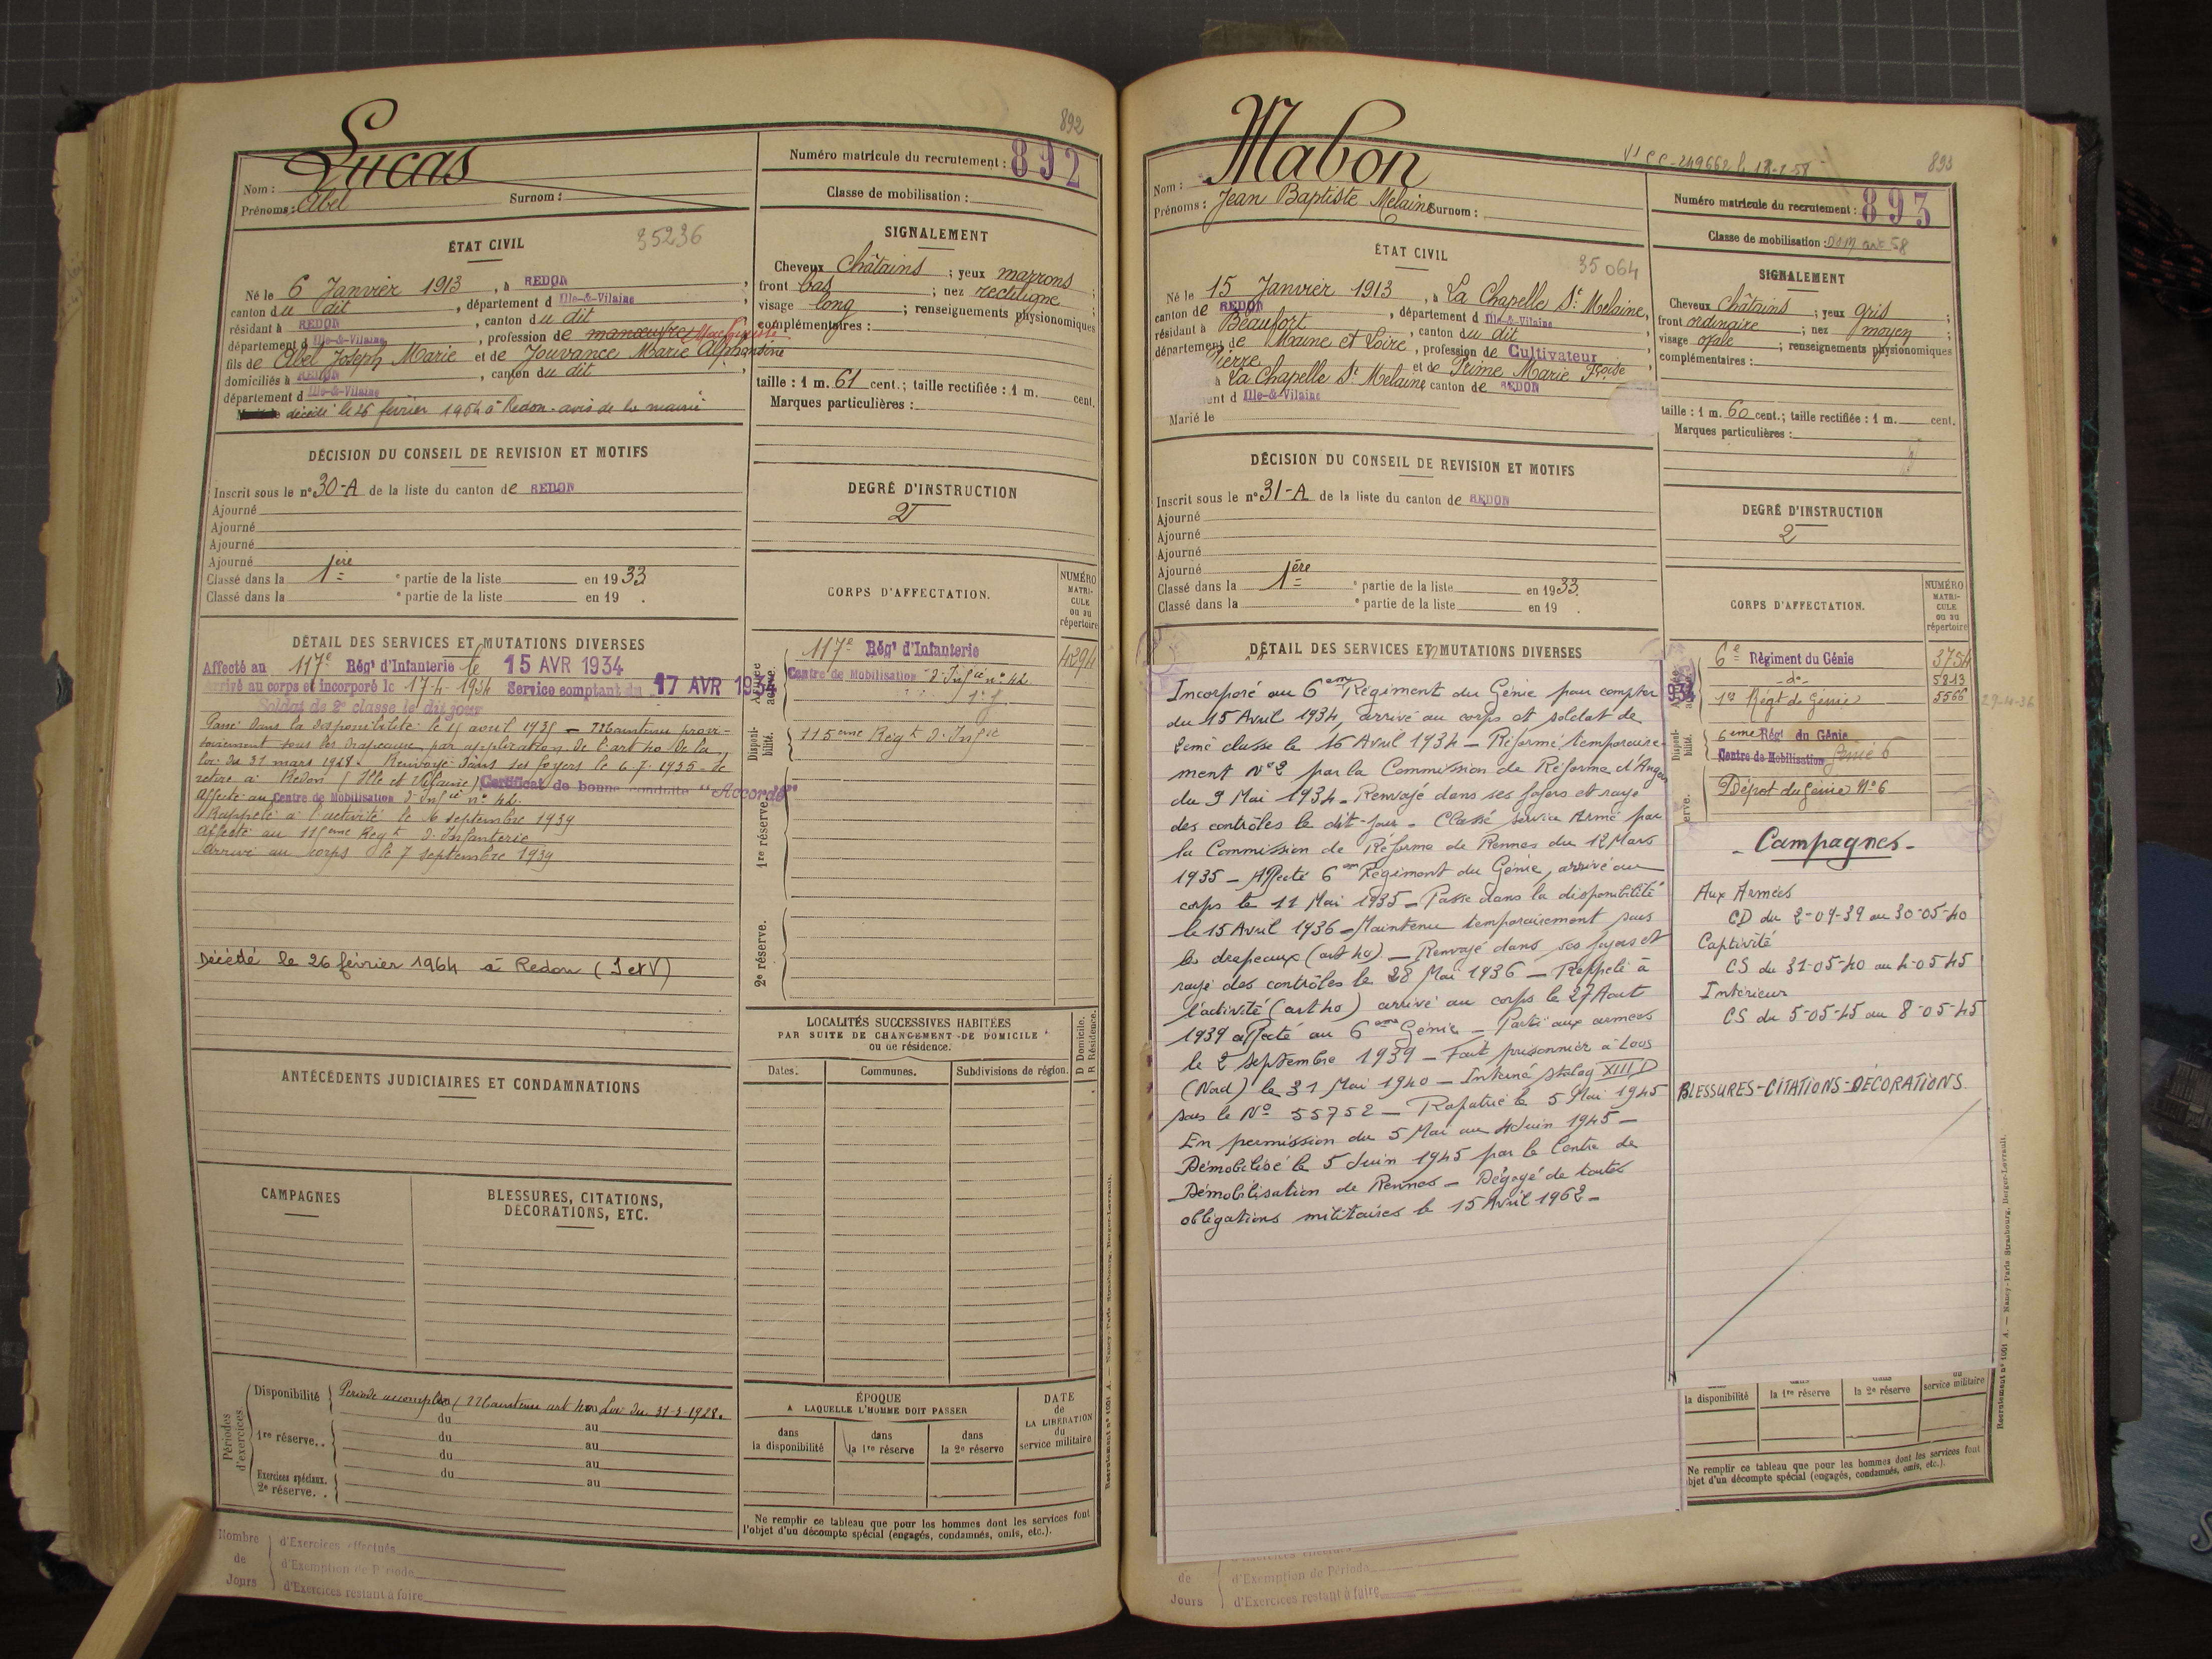 892
Lucas
Nom :
Prénoms : Abel Surnom :
Numéro matricule du recrutement : 892
Classe de mobilisation :
ÉTAT CIVIL
35236
Né le 6 Janvier 1913, à REDON,
canton du dit, département d Ille-&-Vilaine,
résidant à REDON, canton du dit
département d Ille-&-Vilaine, profession de manœuvre
fils de Abel Joseph Marie et de Jouvance Marie Alphonsine
domiciliés à REDON, canton du dit,
département d Ille-&-Vilaine
décédé le 26 février 1964 à Redon - avis de la mairie
SIGNALEMENT
Cheveux Châtains ; yeux marrons ;
front bas ; nez rectiligne ;
visage long ; renseignements physionomiques
complémentaires :
taille : 1 m. 61 cent.; taille rectifiée : 1 m. cent.
Marques particulières :
DÉCISION DU CONSEIL DE REVISION ET MOTIFS
Inscrit sous le n° 30-A de la liste du canton de REDON
Ajourné
Ajourné
Ajourné
Ajourné
Classé dans la 1ère e partie de la liste en 1933
Classé dans la e partie de la liste en 19 .
DEGRÉ D'INSTRUCTION
2
CORPS D'AFFECTATION.
NUMÉRO MATRI-CULE ou au répertoire
DÉTAIL DES SERVICES ET MUTATIONS DIVERSES
Affecté au 117e Rég^t d'Infanterie le 15 AVR 1934
Arrivé au corps et incorporé le 17-4-1934 Service comptant du 17 AVR 1934
Soldat de 2e classe le dit jour
Passé dans la disponibilité le 15 avril 1935 - Maintenu provi-
soirement sous les drapeaux par application de l'art 40 de la
loi du 31 mars 1928. Renvoyé dans ses foyers le 6-7-1935 - se
retire à Redon (Ille et Vilaine) Certificat de bonne conduite "Accordé"
Affecté au Centre de Mobilisation d'Inf^ie n° 42.
Rappelé à l'activité le 6 septembre 1939
Affecté au 115ème Reg^t d'Infanterie
Arrivé au corps le 7 septembre 1939
Décédé le 26 février 1964 à Redon (I et V)
Armée active.
117e Rég^t d'Infanterie 4294
Centre de Mobilisation d'Inf^ie n° 42
Disponibilité.
115eme Reg^t d'Inf^ie
1re réserve.
2e réserve.
LOCALITÉS SUCCESSIVES HABITÉES
PAR SUITE DE CHANGEMENT DE DOMICILE
ou de résidence.
D Domicile. R Résidence.
Dates. Communes. Subdivisions de région.
ANTÉCÉDENTS JUDICIAIRES ET CONDAMNATIONS
CAMPAGNES
BLESSURES, CITATIONS,
DÉCORATIONS, ETC.
Périodes d'exercices.
Disponibilité Période accomplie (Maintenu art 40 Loi du 31-3-1928.
1re réserve..
du au
du au
du au
du au
Exercices spéciaux.
2e réserve..
ÉPOQUE
A LAQUELLE L'HOMME DOIT PASSER
dans la disponibilité
dans la 1re réserve
dans la 2e réserve
DATE de LA LIBÉRATION du service militaire
Ne remplir ce tableau que pour les hommes dont les services font
l'objet d'un décompte spécial (engagés, condamnés, omis, etc.).
Nombre de Jours
d'Exercices effectués
d'Exemption de Période
d'Exercices restant à faire
893
Mabon
Nom :
Prénoms : Jean Baptiste Melaine Surnom :
Numéro matricule du recrutement : 893
Classe de mobilisation :
ÉTAT CIVIL
35064
Né le 15 Janvier 1913, à La Chapelle S^t Melaine,
canton de REDON, département d Ille-&-Vilaine
résidant à Beaufort, canton du dit
département de Maine et Loire, profession de Cultivateur
Pierre et de Prime Marie
à La Chapelle S^t Melaine canton de REDON
Ille-&-Vilaine
Marié le
SIGNALEMENT
Cheveux Châtains ; yeux gris ;
front ordinaire ; nez moyen ;
visage ovale ; renseignements physionomiques
complémentaires :
taille : 1 m. 60 cent.; taille rectifiée : 1 m. cent.
Marques particulières :
DÉCISION DU CONSEIL DE REVISION ET MOTIFS
Inscrit sous le n° 31-A de la liste du canton de REDON
Ajourné
Ajourné
Ajourné
Ajourné
Classé dans la 1ère e partie de la liste en 1933.
Classé dans la e partie de la liste en 19 .
DEGRÉ D'INSTRUCTION
2
CORPS D'AFFECTATION.
NUMÉRO MATRI-CULE ou au répertoire
DÉTAIL DES SERVICES ET MUTATIONS DIVERSES
Incorporé au 6ème Régiment du Génie pour compter
du 15 Avril 1934, arrivé au corps et soldat de
2ème classe le 16 Avril 1934 - Réformé temporaire-
ment N°2 par la Commission de Réforme d'Angers
du 9 Mai 1934 - Renvoyé dans ses foyers et rayé
des contrôles le dit-jour - Classé service Armé par
la Commission de Réforme de Rennes du 12 Mars
1935 - Affecté 6ème Régiment du Génie, arrivé au
corps le 11 Mai 1935 - Passe dans la disponibilité
le 15 Avril 1936 - Maintenu temporairement sous
les drapeaux (art 40) - Renvoyé dans ses foyers et
rayé des contrôles le 28 Mai 1936 - Rappelé à
l'activité (art 40) arrivé au corps le 27 Aout
1939 affecté au 6ème Génie - Parti aux armées
le 2 septembre 1939 - Fait prisonnier à Loos
(Nord) le 31 Mai 1940 - Interné stalag XIII D
sous le N° 55752 - Rapatrié le 5 Mai 1945
En permission du 5 Mai au 4 Juin 1945 -
Démobilisé le 5 Juin 1945 par le Centre de
Démobilisation de Rennes - Dégagé de toutes
obligations militaires le 15 Avril 1962 -
6e Régiment du Génie 3754
-do- 5813
1er Régt de Génie 5566 29-4-36
Disponibilité.
6eme Rég^t du Génie
Centre de Mobilisation Génie 6
Dépot du Génie N°6
- Campagnes -
Aux Armées
CD du 2-09-39 au 30-05-40
Captivité
CS du 31-05-40 au 4-05-45
Intérieur
CS du 5-05-45 au 8-05-45
BLESSURES-CITATIONS-DÉCORATIONS
la disponibilité
la 1re réserve
la 2e réserve
service militaire
Ne remplir ce tableau que pour les hommes dont les services font
objet d'un décompte spécial (engagés, condamnés, omis, etc.).
de
Jours
d'Exemption de Période
d'Exercices restant à faire
Recrutement n° 1001 A. — Nancy-Paris Strasbourg, Berger-Levrault.